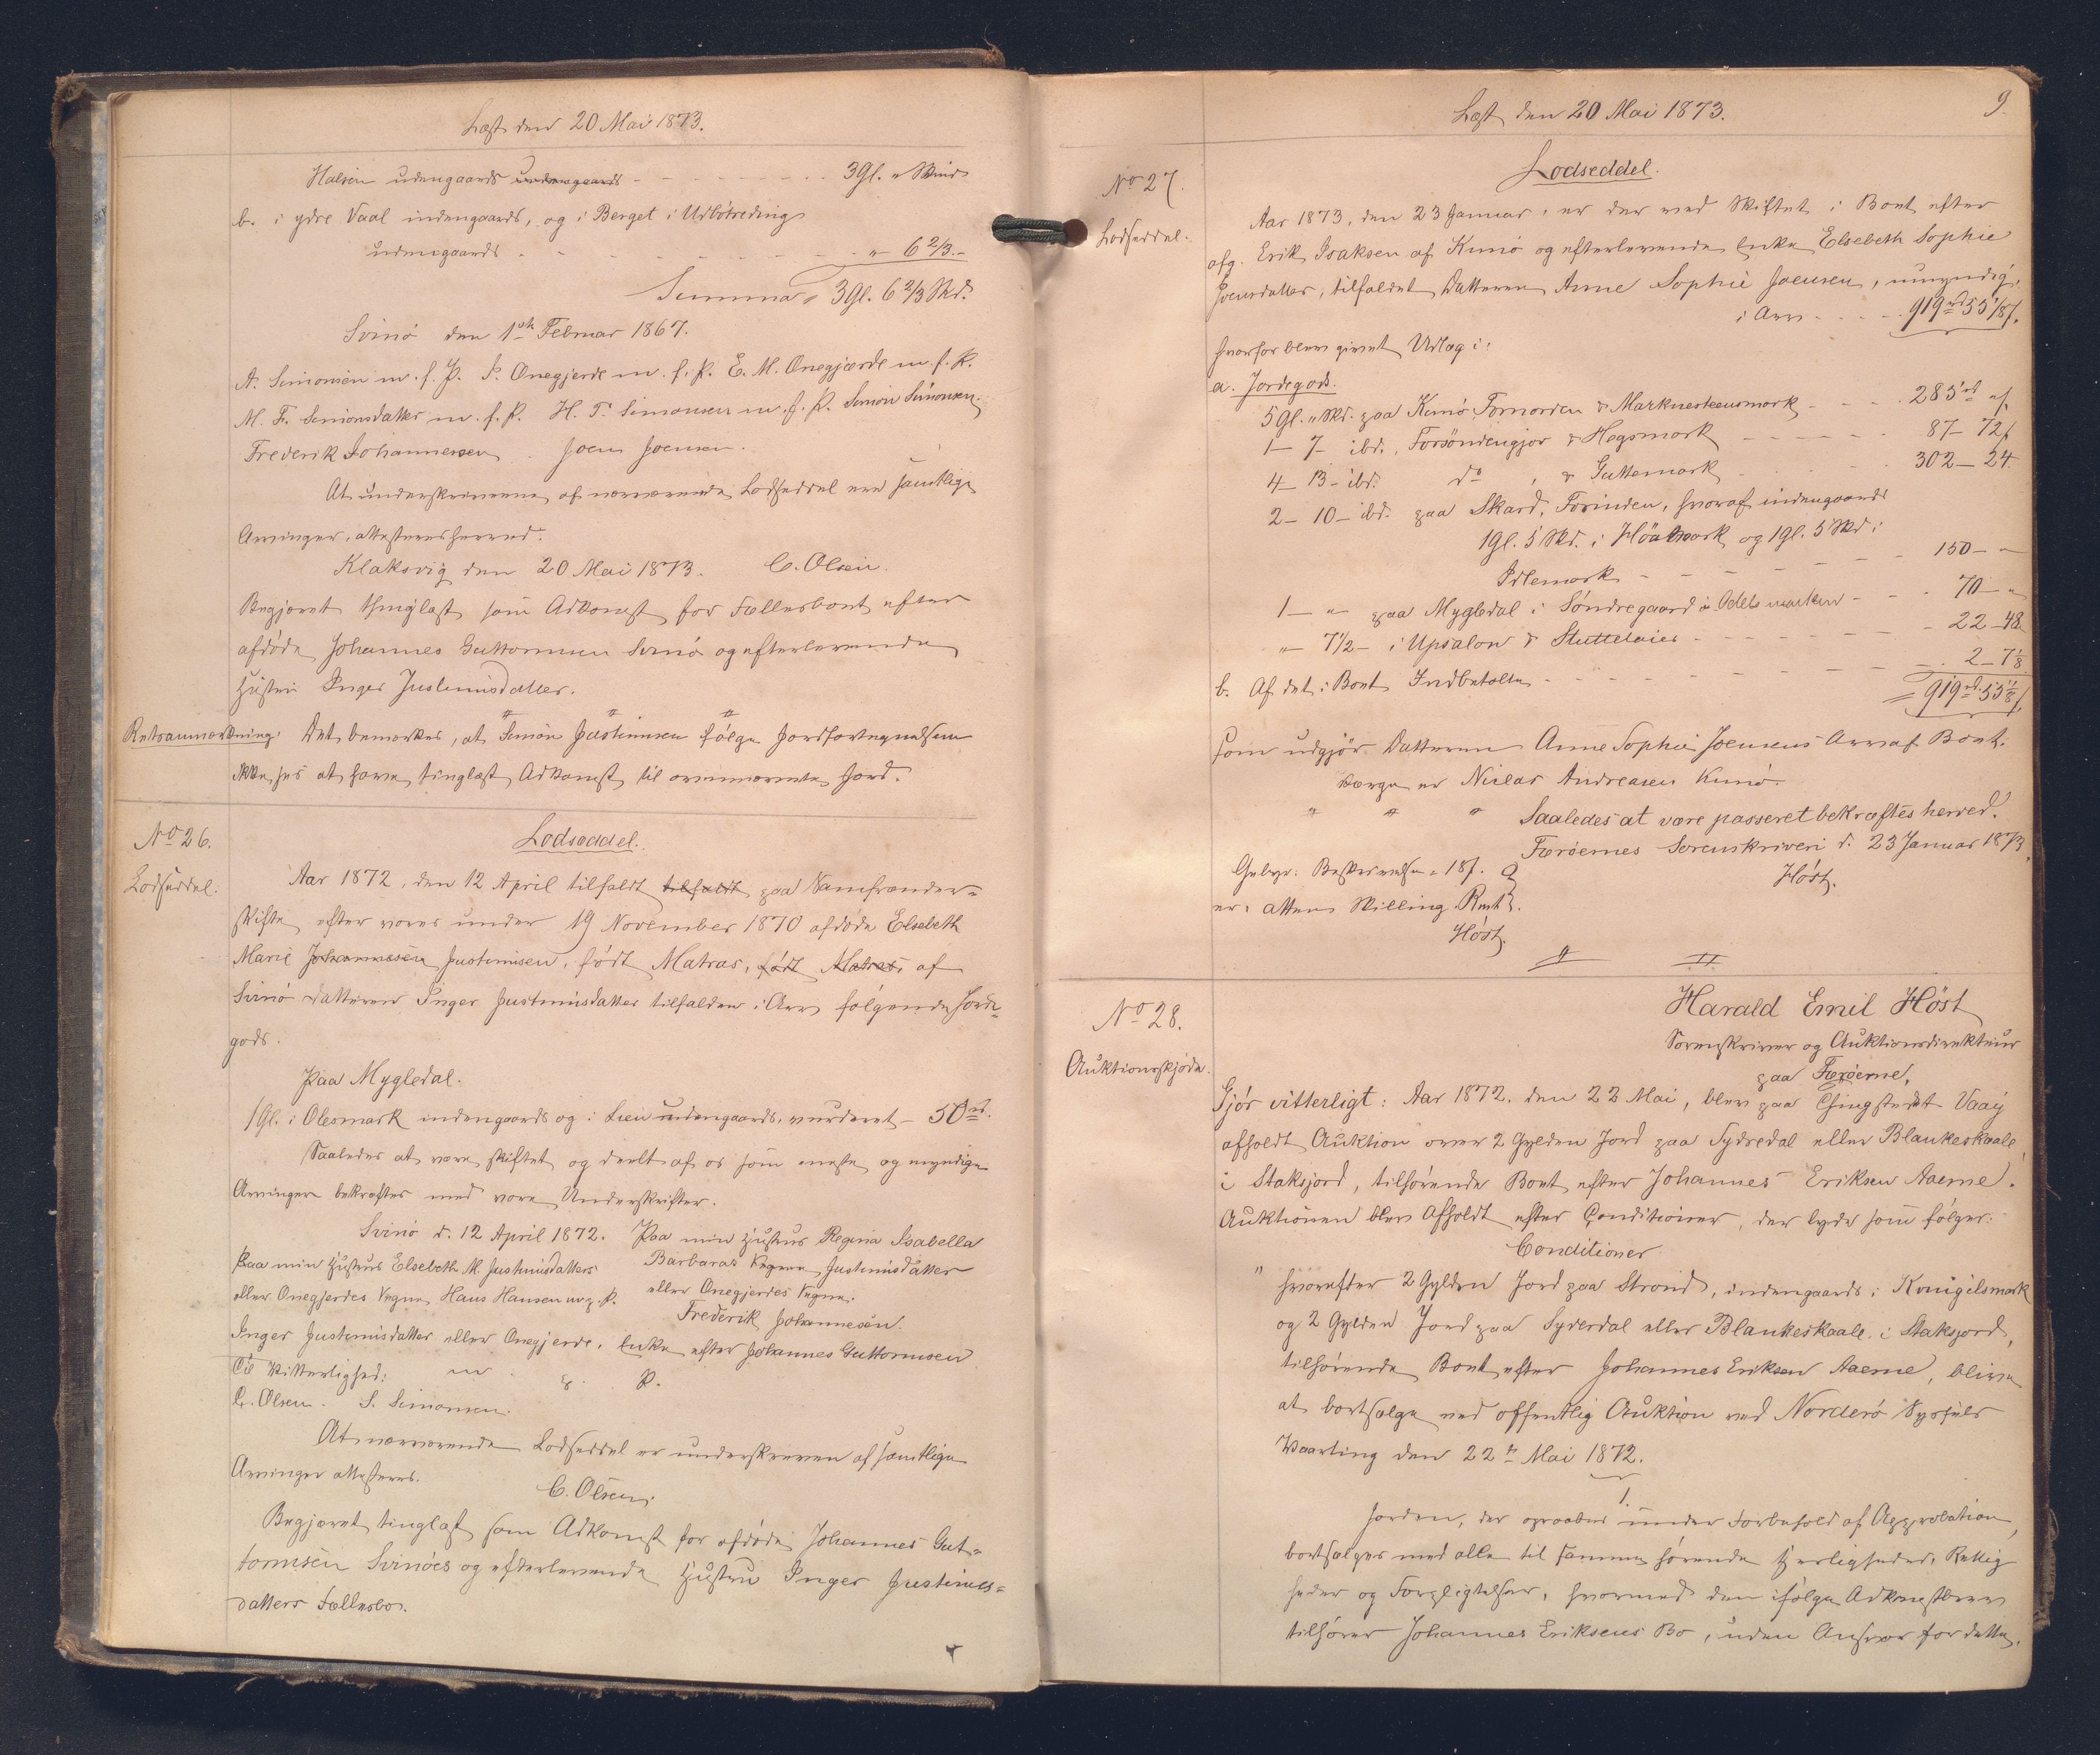 Læst den 20 Mai 1873.
Halsen udengaards udengaards - - - 3 Gl. " Skind
b. i ydre Vaal indengaards, og i Berget i Udbötreding
udengaards - - - " 6 2/3.-
Summa " 3 Gl. 6 2/3 Skd.
Svinö den 1ste Februar 1867.
A. Simonsen m. f. P. P. Onegjerde m. f. P. E. M. Onegjærde m. f. P.
M. F. Simonsdatter m. f. P. H. P. Simonsen m. f. P. Simon Simonsen.
Frederik Johannesen. Joen Joensen.
At underskriverne af nærværende Lodseddel ere samtlige
Arvinger, attesteres herved.
Klaksvig den 20 Mai 1873. C. Olsen.
Begjæret thinglæst som Adkomst for Fællesboet efter
afdöde Johannes Guttormsen Svinö og efterlevende
Hustru Inger Justinusdatter.
Retsanmærkning: Det bemærkes, at Simon Justinusen ifölge Jordfortegnelsen
ikke sees at have tinglæst Adkomst til ovennævnte Jord.
No 26.
Lodseddel.
Lodseddel.
Aar 1872, den 12 April tilfaldt tilfaldt paa Samfrænder-
skifte efter vores under 19 November 1870 afdöde Elsebeth
Marie Johannesen Justinusen, födt Matras, födt Matras, af
Svinö Datteren Inger Justinusdatter tilfalden i Arv fölgende Jorde-
gods.
Paa Mygledal.
1 Gl. i Olesmark indengaards og i Lien udengaards, vurderet - 50 rd.
Saaledes at være skiftet og deelt af os som eneste og myndige
Arvinger bekræftes med vore Underskrifter.
Svinö d. 12 April 1872. Paa min Hustrus Regina Isabella
Paa min Hustrus Elsebeth M. Justinusdatters Barbaras Vegne Justinusdatter
eller Onegjerdes Vegne Hans Hansen m. f. P. eller Onegjerdes Vegne.
Frederik Johannesen.
Inger Justinusdatter eller Onegjerde, Enke efter Johannes Guttormsen
Til Vitterlighed: m f. P.
C. Olsen. S. Simonsen.
At nærværende Lodseddel er underskreven af samtlige
Arvinger attesteres.
C. Olsen.
Begjæret tinglæst som Adkomst for afdöde Johannes Gut-
tormsen Svinöes og efterlevende Hustru Inger Justinus-
datters Fællesbo.
Læst den 20 Mai 1873.
9.
No 27.
Lodseddel.
Lodseddel.
Aar 1873, den 23 Januar, er der ved Skiftet i Boet efter
afg. Erik Isaksen af Kunö og efterlevende Enke Elsebeth Sophie
Joensdatter, tilfaldet Datteren Anne Sophie Joensen, umyndig,
i Arv - - - 919 rd 55 1/8 f.
hvorfor blev givet Udlæg i:
a. Jordegods.
5 Gl. " Skd. paa Kunö Fornorden & Marknesteensmark - - - 285 rd " f.
1 - 7 - ibd., Forsöndengjov & Hegomark - - - 87 - 72 f
4 - 13 - ibd. do, & Guttemark - - - 302 - 24
2 - 10 - ibd. paa Skard, Forinden, hvoraf indengaards
1 Gl. 5 Skd. i Höamork og 1 Gl. 5 Skd. i
Irlemark - - - 150 - "
1 - " paa Mygledal i Söndregaard i Odelsmarken - - - 70 - "
" 7 1/2 - i Upsalow & Stuttelaier - - - 22 - 48
b. Af det i Boet Indbetalte - - - 2 - 7 1/8
= 919 rd 55 1/8 f.
som udgjör Datteren Anne Sophie Joensens Arv af Boet.
Værge er Niclas Andreasen Kunö.
" " " Saaledes at være passeret bekræftes herved.
Færöernes Sorenskriveri d. 23 Januar 1873.
Höst.
Gebyr: Beskrivelse = 18 f.
er: atten Skilling Rmt.
Höst.
No 28.
Auktionsskjöde.
Harald Emil Höst
Sorenskriver og Auktionsdirekteur
paa Færöerne,
Gjör vitterligt: Aar 1872, den 22 Mai, blev paa Thingstedet Vaag
afholdt Auktion over 2 Gylden Jord paa Sydredal eller Blankeskaale,
i Staksjord, tilhörende Boet efter Johannes Eriksen Aaerne.
Auktionen blev Afholdt efter Conditioner, der lyde som fölger:
Conditioner
" hvorefter 2 Gylden Jord paa Strond, indengaards i Konigilsmark
og 2 Gylden Jord paa Syderdal eller Blankeskaale i Staksjord,
tilhörende Boet efter Johannes Eriksen Aaerne, blive
at bortsælge ved offentlig Auktion ved Norderö Syssels
Vaarting den 22de Mai 1872.
1.
Jorden, der opraabes under Forbehold af Approbation,
bortsælges med alle til samme hörende Herligheder, Rettig
heder og Forpligtelser, hvormed den ifölge Adkomstbrev
tilhörer Johannes Eriksens Bo, uden Ansvar for dette,